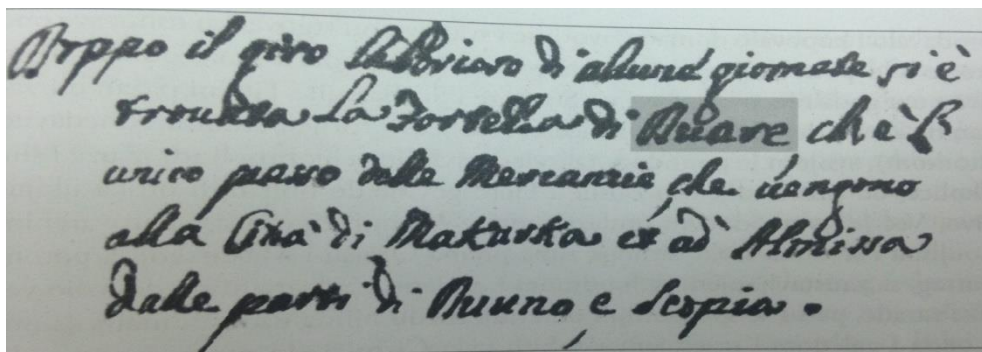 Doppo il giro laborioso di alcune giornate si è
trouata La Fortezza di Duare che è l'
unico passo delle Mercanzie, che uengono
alla Città di Makarska et ad Almissa
dalle parti di Duuno, e Scopia.